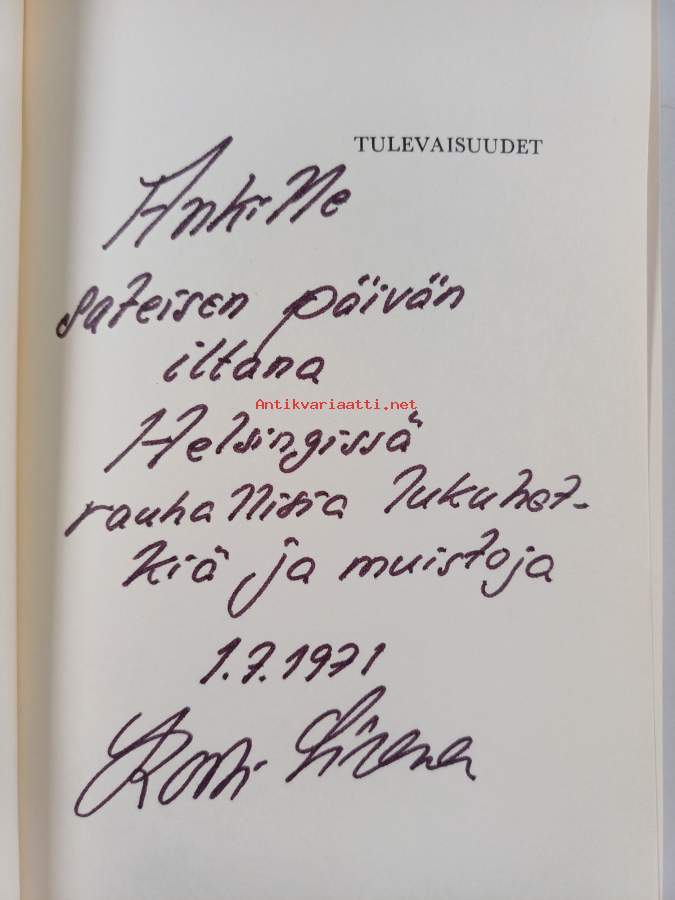 TULEVAISUUDET
Ankille
sateisen päivän
iltana
Antikvariaatti.net
Helsingissä
rauhallisia lukuhet-
kiä ja muistoja
1.7.1971